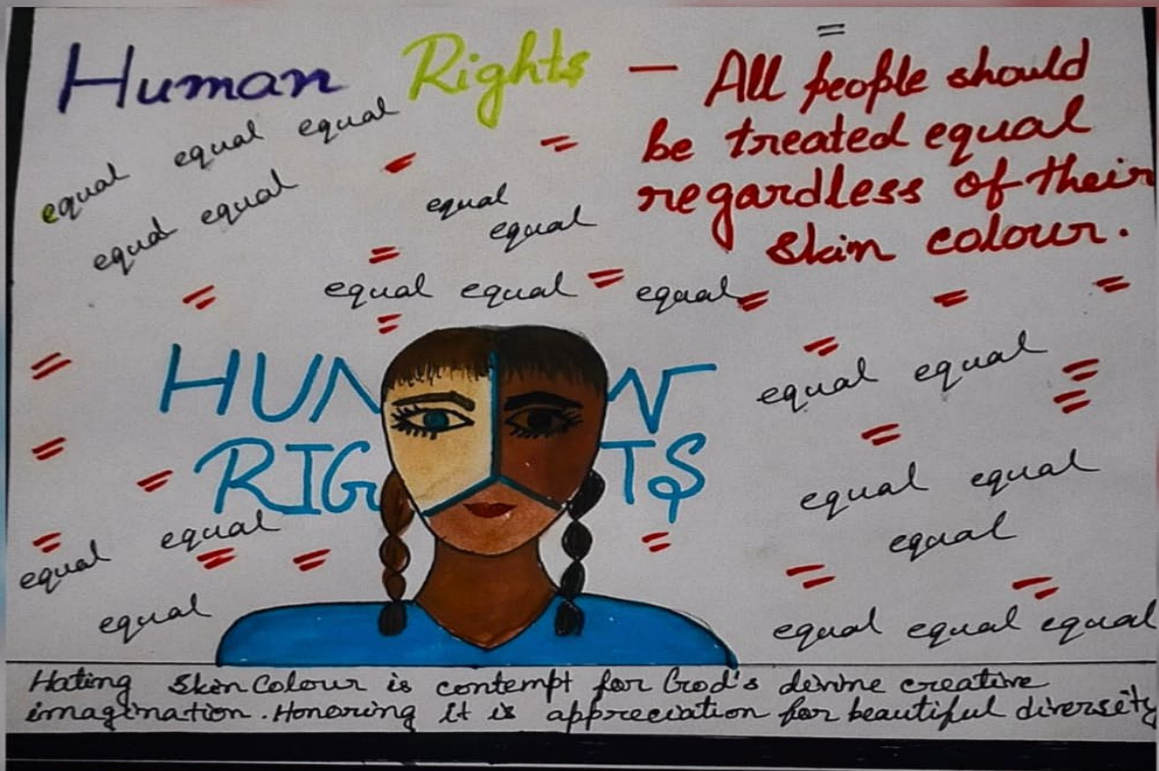 =
Human Rights — All people should
be treated equal
regardless of their
skin colour.
equal equal equal
equal equal
equal
equal
= =
=
equal equal = equal =
= = =
=
HUMAN
RIGHTS
= =
equal equal
=
=
=
=
equal equal
=
equal
= =
equal equal
= =
=
equal
= =
equal equal equal
Hating skin colour is contempt for God's devine creative
imagination. Honoring it is appreciation for beautiful diversity